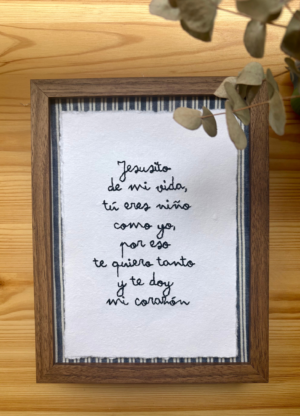 Jesusito
de mi vida,
tú eres niño
como yo,
por eso
te quiero tanto
y te doy
mi corazón